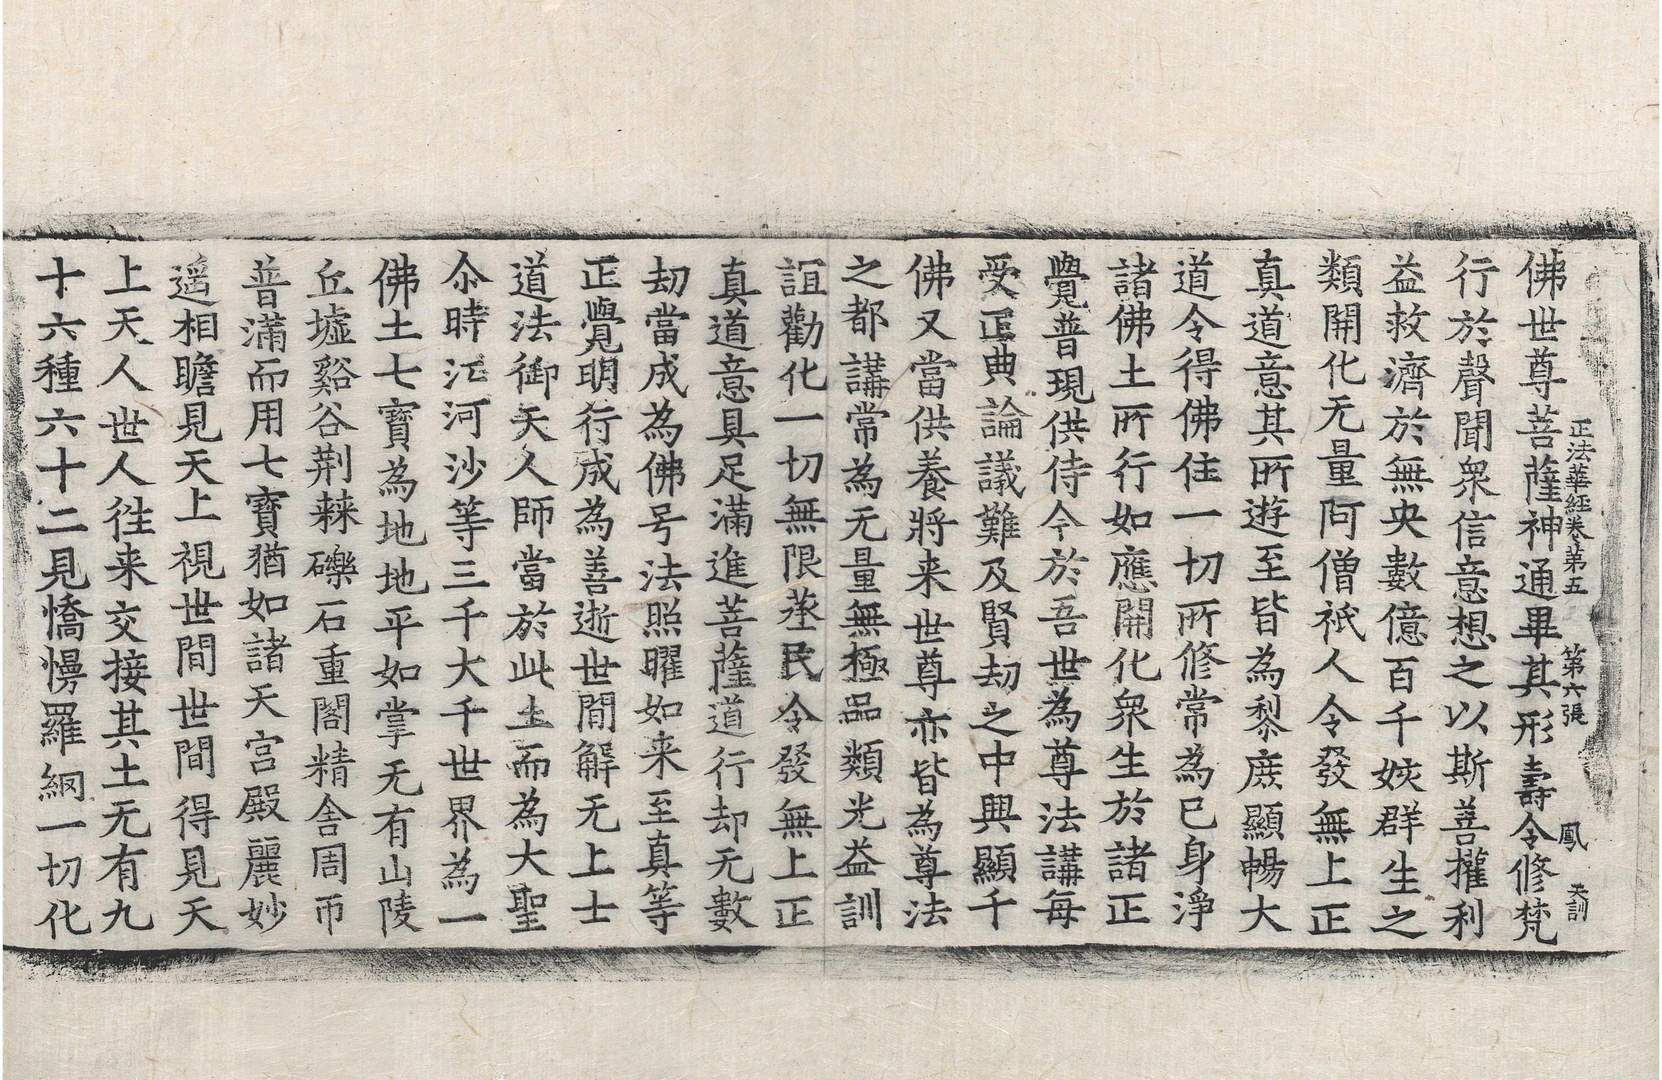 正法華經卷第五 第六張 鳳 天訓
佛世尊菩薩神通畢其形壽令修梵
行於聲聞衆信意想之以斯善攉利
益救濟於無央數億百千姟群生之
類開化无量阿僧祇人令發無上正
真道意其所遊至皆為黎庶顯暢大
道令得佛住一切所修常為已身淨
諸佛土所行如應開化衆生於諸正
覺普現供侍令於吾世為尊法講每
受正典論議難及賢劫之中興顯千
佛又當供養將来世尊亦皆為尊法
之都講常為无量無極品類光益訓
誼勸化一切無限蒸民令發無上正
真道意具足滿進菩薩道行却无數
劫當成為佛号法照曜如来至真等
正覺明行成為善逝世間解无上士
道法御天人師當於此土而為大聖
尒時江河沙等三千大千世界為一
佛土七寶為地地平如掌无有山陵
丘墟谿谷荆棘礫石重閣精舍周帀
普滿而用七寶猶如諸天宮殿麗妙
遥相瞻見天上視世間世間得見天
上天人世人徃来交接其土无有九
十六種六十二見憍慢羅網一切化